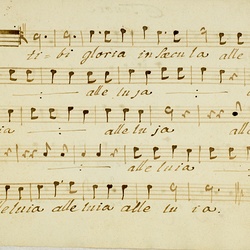 ti - bi gloria in sæcula alle
alle lu ja
ia alle lu ja
alle luia
le luia alle luia alle lu ia.